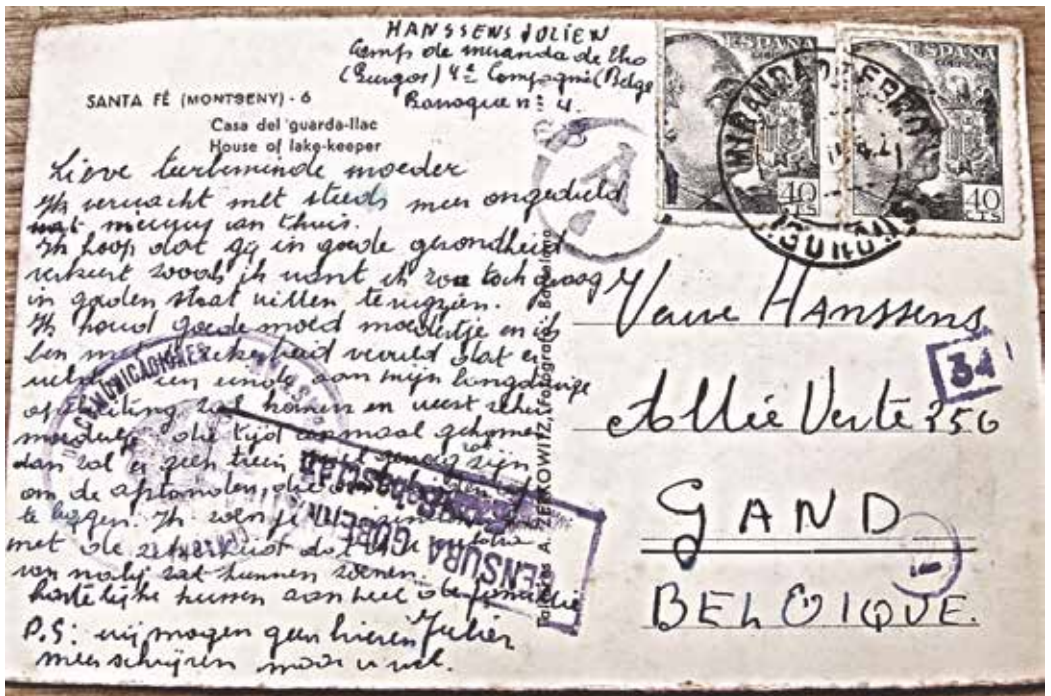 HANSSENS JULIEN
Camp de miranda de Ebro
(Burgos) 4e Compagnie (Belge
Baraque n° 4.
SANTA FÉ (MONTSENY) - 6
Casa del guarda-llac
House of lake-keeper
Lieve teerbeminde moeder
Ik verwacht met steeds meer ongeduld
wat nieuws van thuis.
Ik hoop dat gij in goede gezondheid
verkeert zooals ik want ik zou toch graag
in goeden staat willen terugzien.
Ik houd goede moed moedertje en ik
ben met zekerheid vervuld dat er
een einde aan mijn langdurige
opsluiting zal komen en weest zeker
moedertje die tijd eenmaal gekomen
dan zal er geen trein zijn
om de afstanden, die
te leggen. Ik zoen je
met de zekerheid dat ik u
van nabij zal kunnen zoenen.
hartelijke kussen aan heel de familie
Julien
P.S: wij mogen geen brieven
meer schrijven maar u wel.
ESPAÑA
CORREOS
40
CTS
ESPAÑA
40
CTS
MIRANDA DE EBRO
(BURGOS)
A
COMUNICACIONES
CENSURA GUBERNATIVA
A. ZERKOWITZ, Fotografo Barcelona
34
Veuve Hanssens
Allée Verte 256
GAND
BELGIQUE